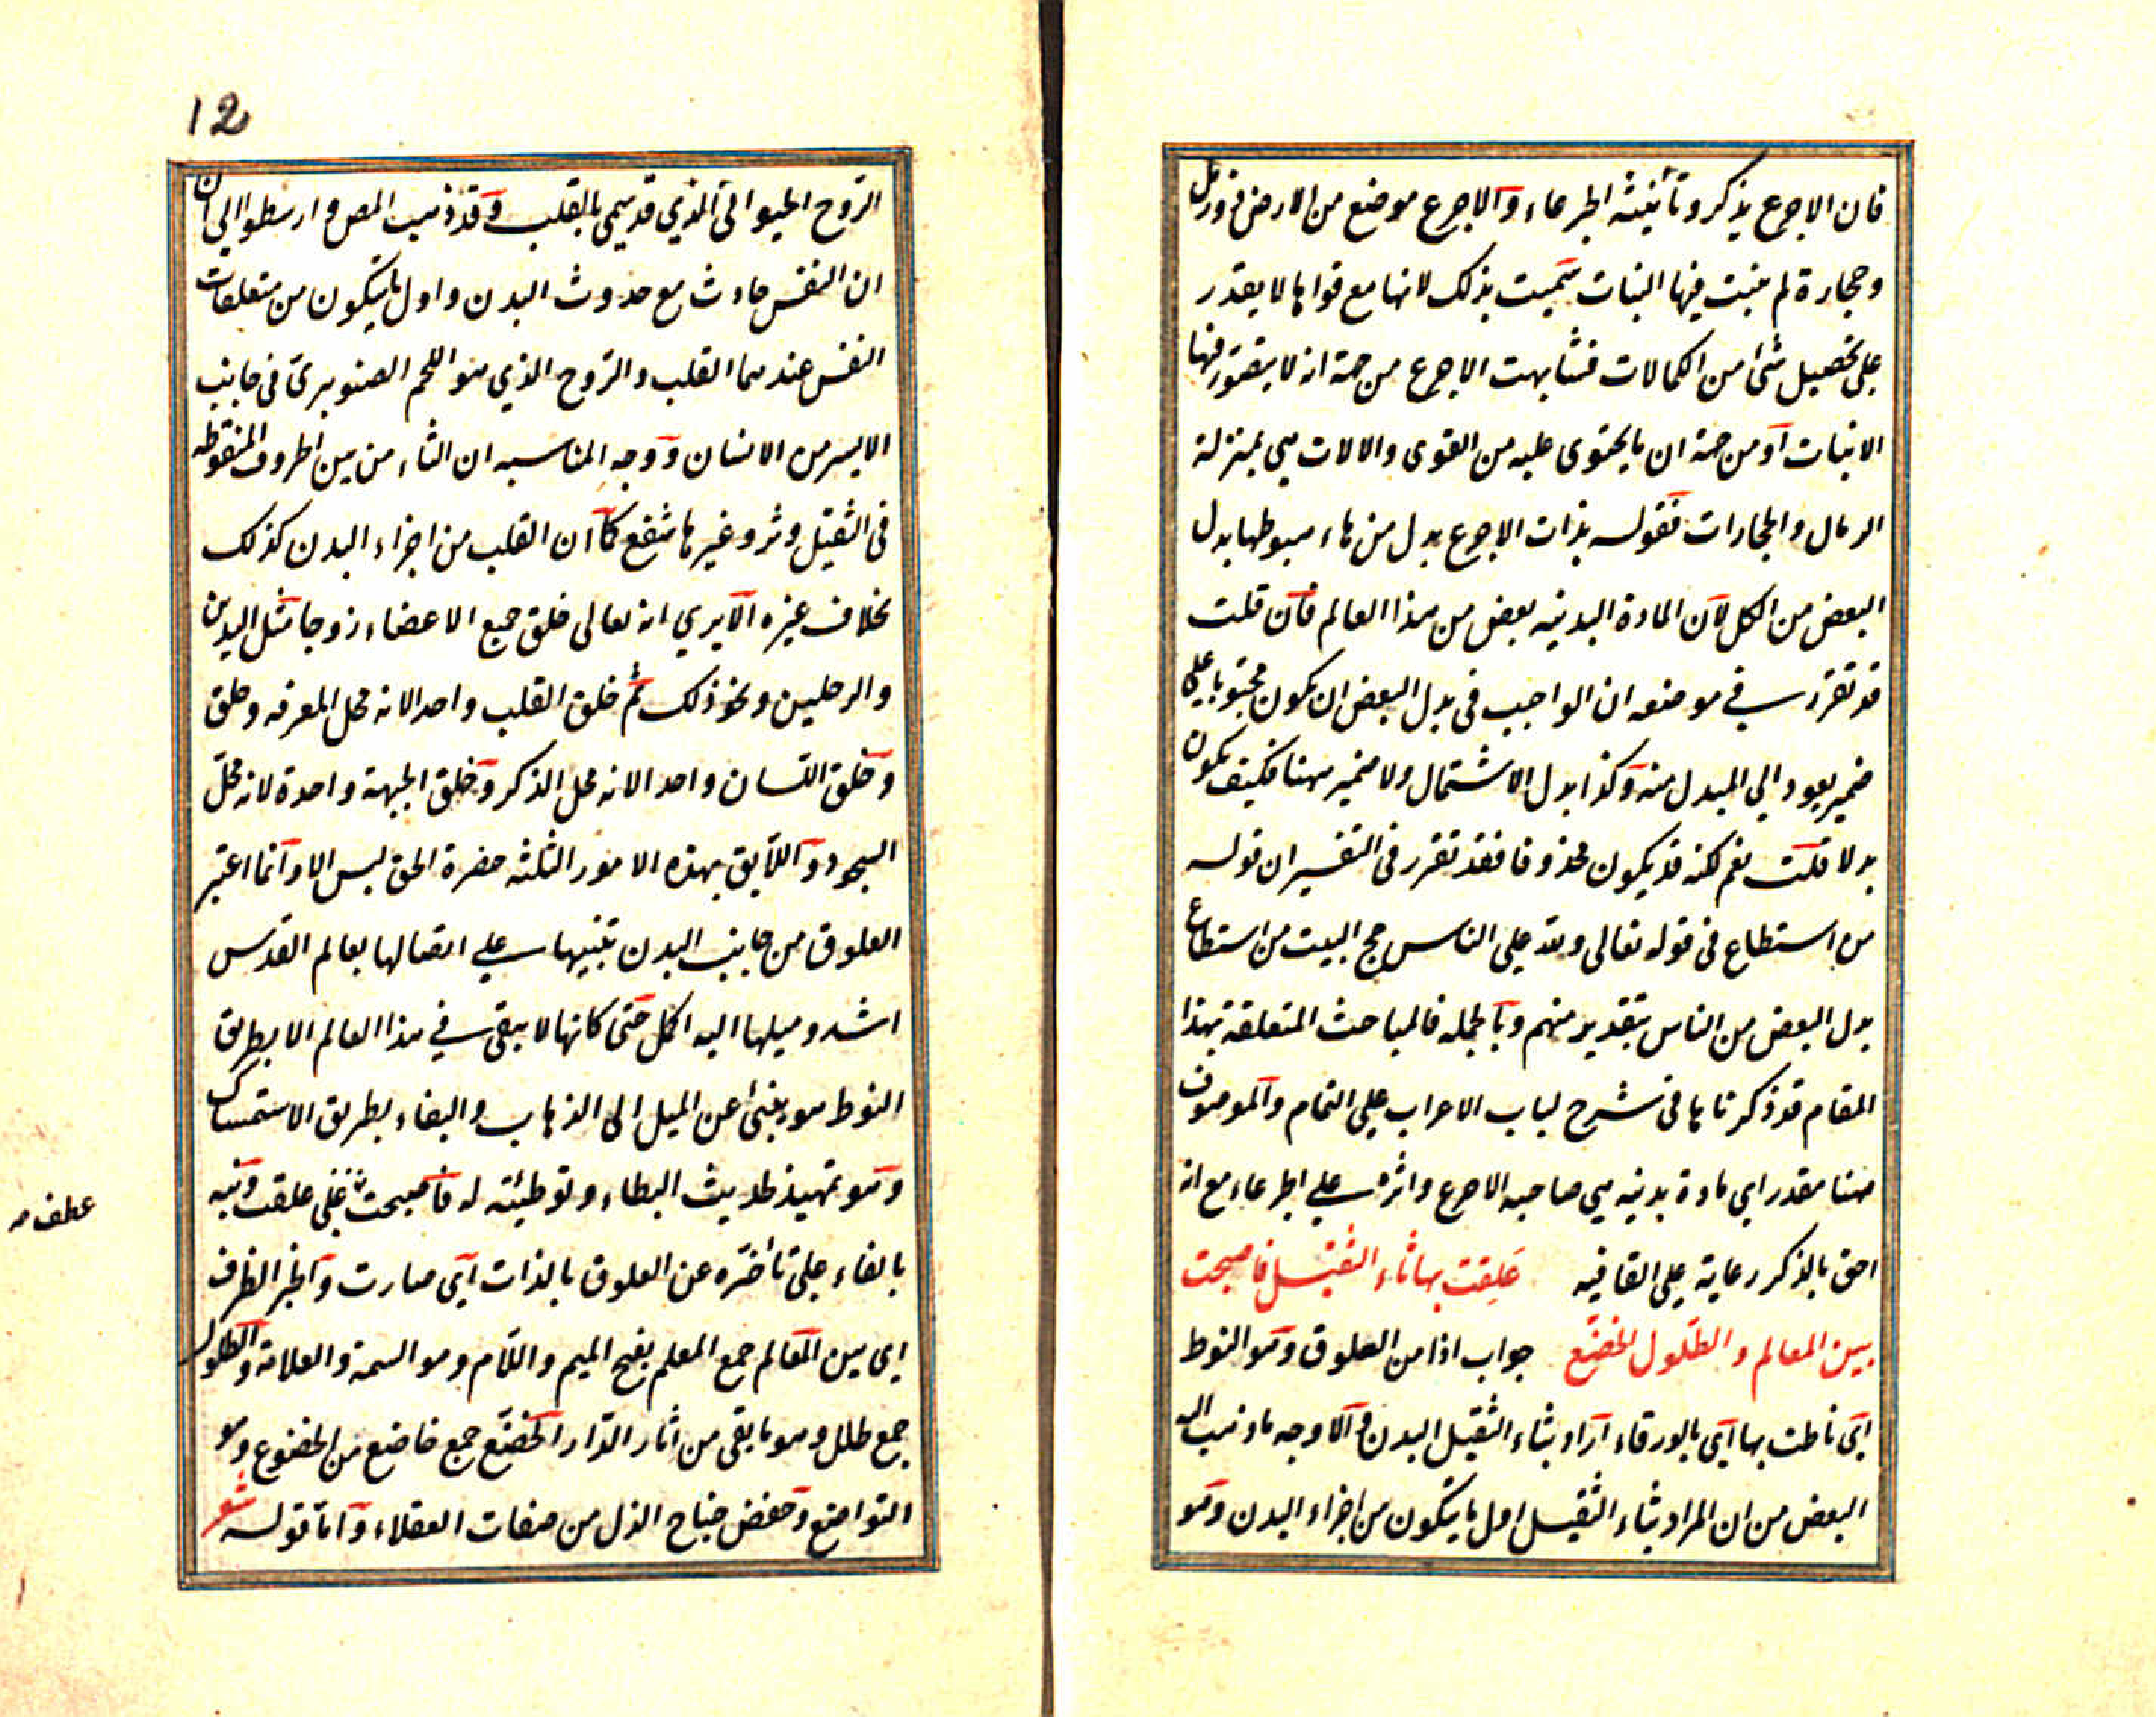 فان الاجرع يذكر وتأنيثه الجرعاء والاجرع موضع من الارض ذو رمل
وحجارة لم ينبت فيها النبات سميت بذلك لانها مع قواها لا يقدر
على تحصيل شئ من الكمالات فشابهت الاجرع من جهة انه لا يتصور فيها
الانبات او من جهة ان ما يحتوى عليه من القوى والالات هي بمنزلة
الرمال والحجارات فقوله بذات الاجرع بدل من هاء هبوطها بدل
البعض من الكل لان المادة البدنيه بعض من هذا العالم فان قلت
قد تقرر في موضعه ان الواجب في بدل البعض ان يكون محتويا على
ضمير يعود الي المبدل منه وكذا بدل الاشتمال ولا ضمير ههنا فكيف يكون
بدلا قلت نعم لكنه قد يكون محذوفا فقد تقرر في التفسير ان قوله
من استطاع في قوله تعالى ولله على الناس حج البيت من استطاع
بدل البعض من الناس بتقدير منهم وبالجمله فالمباحث المتعلقة بهذا
المقام قد ذكرناها في شرح لباب الاعراب على التمام والموصوف
ههنا مقدر اي مادة بدنيه هي صاحبه الاجرع واثره علي الجرعاء مع انه
احق بالذكر رعاية على القافيه علقت بها ثاء الثقيل فاصبحت
بين المعالم والطلول الخضع جواب اذا من العلوق وهو النوط
اي ناطت بها اي بالورقاء اراد بثاء الثقيل البدن والاوجه ما ذهب اليه
البعض من ان المراد بثاء الثقيل اول ما يتكون من اجزاء البدن وهو
12
الروح الحيواني الذي قد يسمى بالقلب وقد ذهب المص وارسطو الي ان
ان النفس حادث مع حدوث البدن واول ما يتكون من متعلقات
النفس عندهما القلب والروح الذي هو اللحم الصنوبري في جانب
الايسر من الانسان ووجه المناسبه ان الثاء من بين الحروف المنقوطه
في الثقيل وتر وغيرها شفع كما ان القلب من اجزاء البدن كذلك
بخلاف غيره الا يري انه تعالى خلق جميع الاعضاء زوجا مثل اليدين
والرجلين ونحو ذلك ثم خلق القلب واحدا لانه محل المعرفه وخلق
وخلق اللسان واحدا لانه محل الذكر وخلق الجبهة واحدة لانه محل
السجود واللايق بهذه الامور الثلثه حضرة الحق ليس الا وانما اعتبر
العلوق من جانب البدن تنبيها علي اتصالها بعالم القدس
اشد وميلها اليه اكمل حتى كانها لا يبقى في هذا العالم الا بطريق
النوط هو ينبئ عن الميل الى الذهاب والبقاء بطريق الاستمساك
وهو تمهيد لحديث البطاء وتوطيئته له فاصبحت على علقت ونبه
عطف صح
بالفاء على تأخره عن العلوق بالذات اي صارت والخبر الظرف
اي بين المعالم جمع المعلم بفتح الميم واللام وهو السمة والعلامة والطلول
جمع طلل وهو ما بقى من اثار الدار الخضع جمع خاضع من الخضوع وهو
التواضع وخفض جناح الذل من صفات العقلاء واما قوله شعر